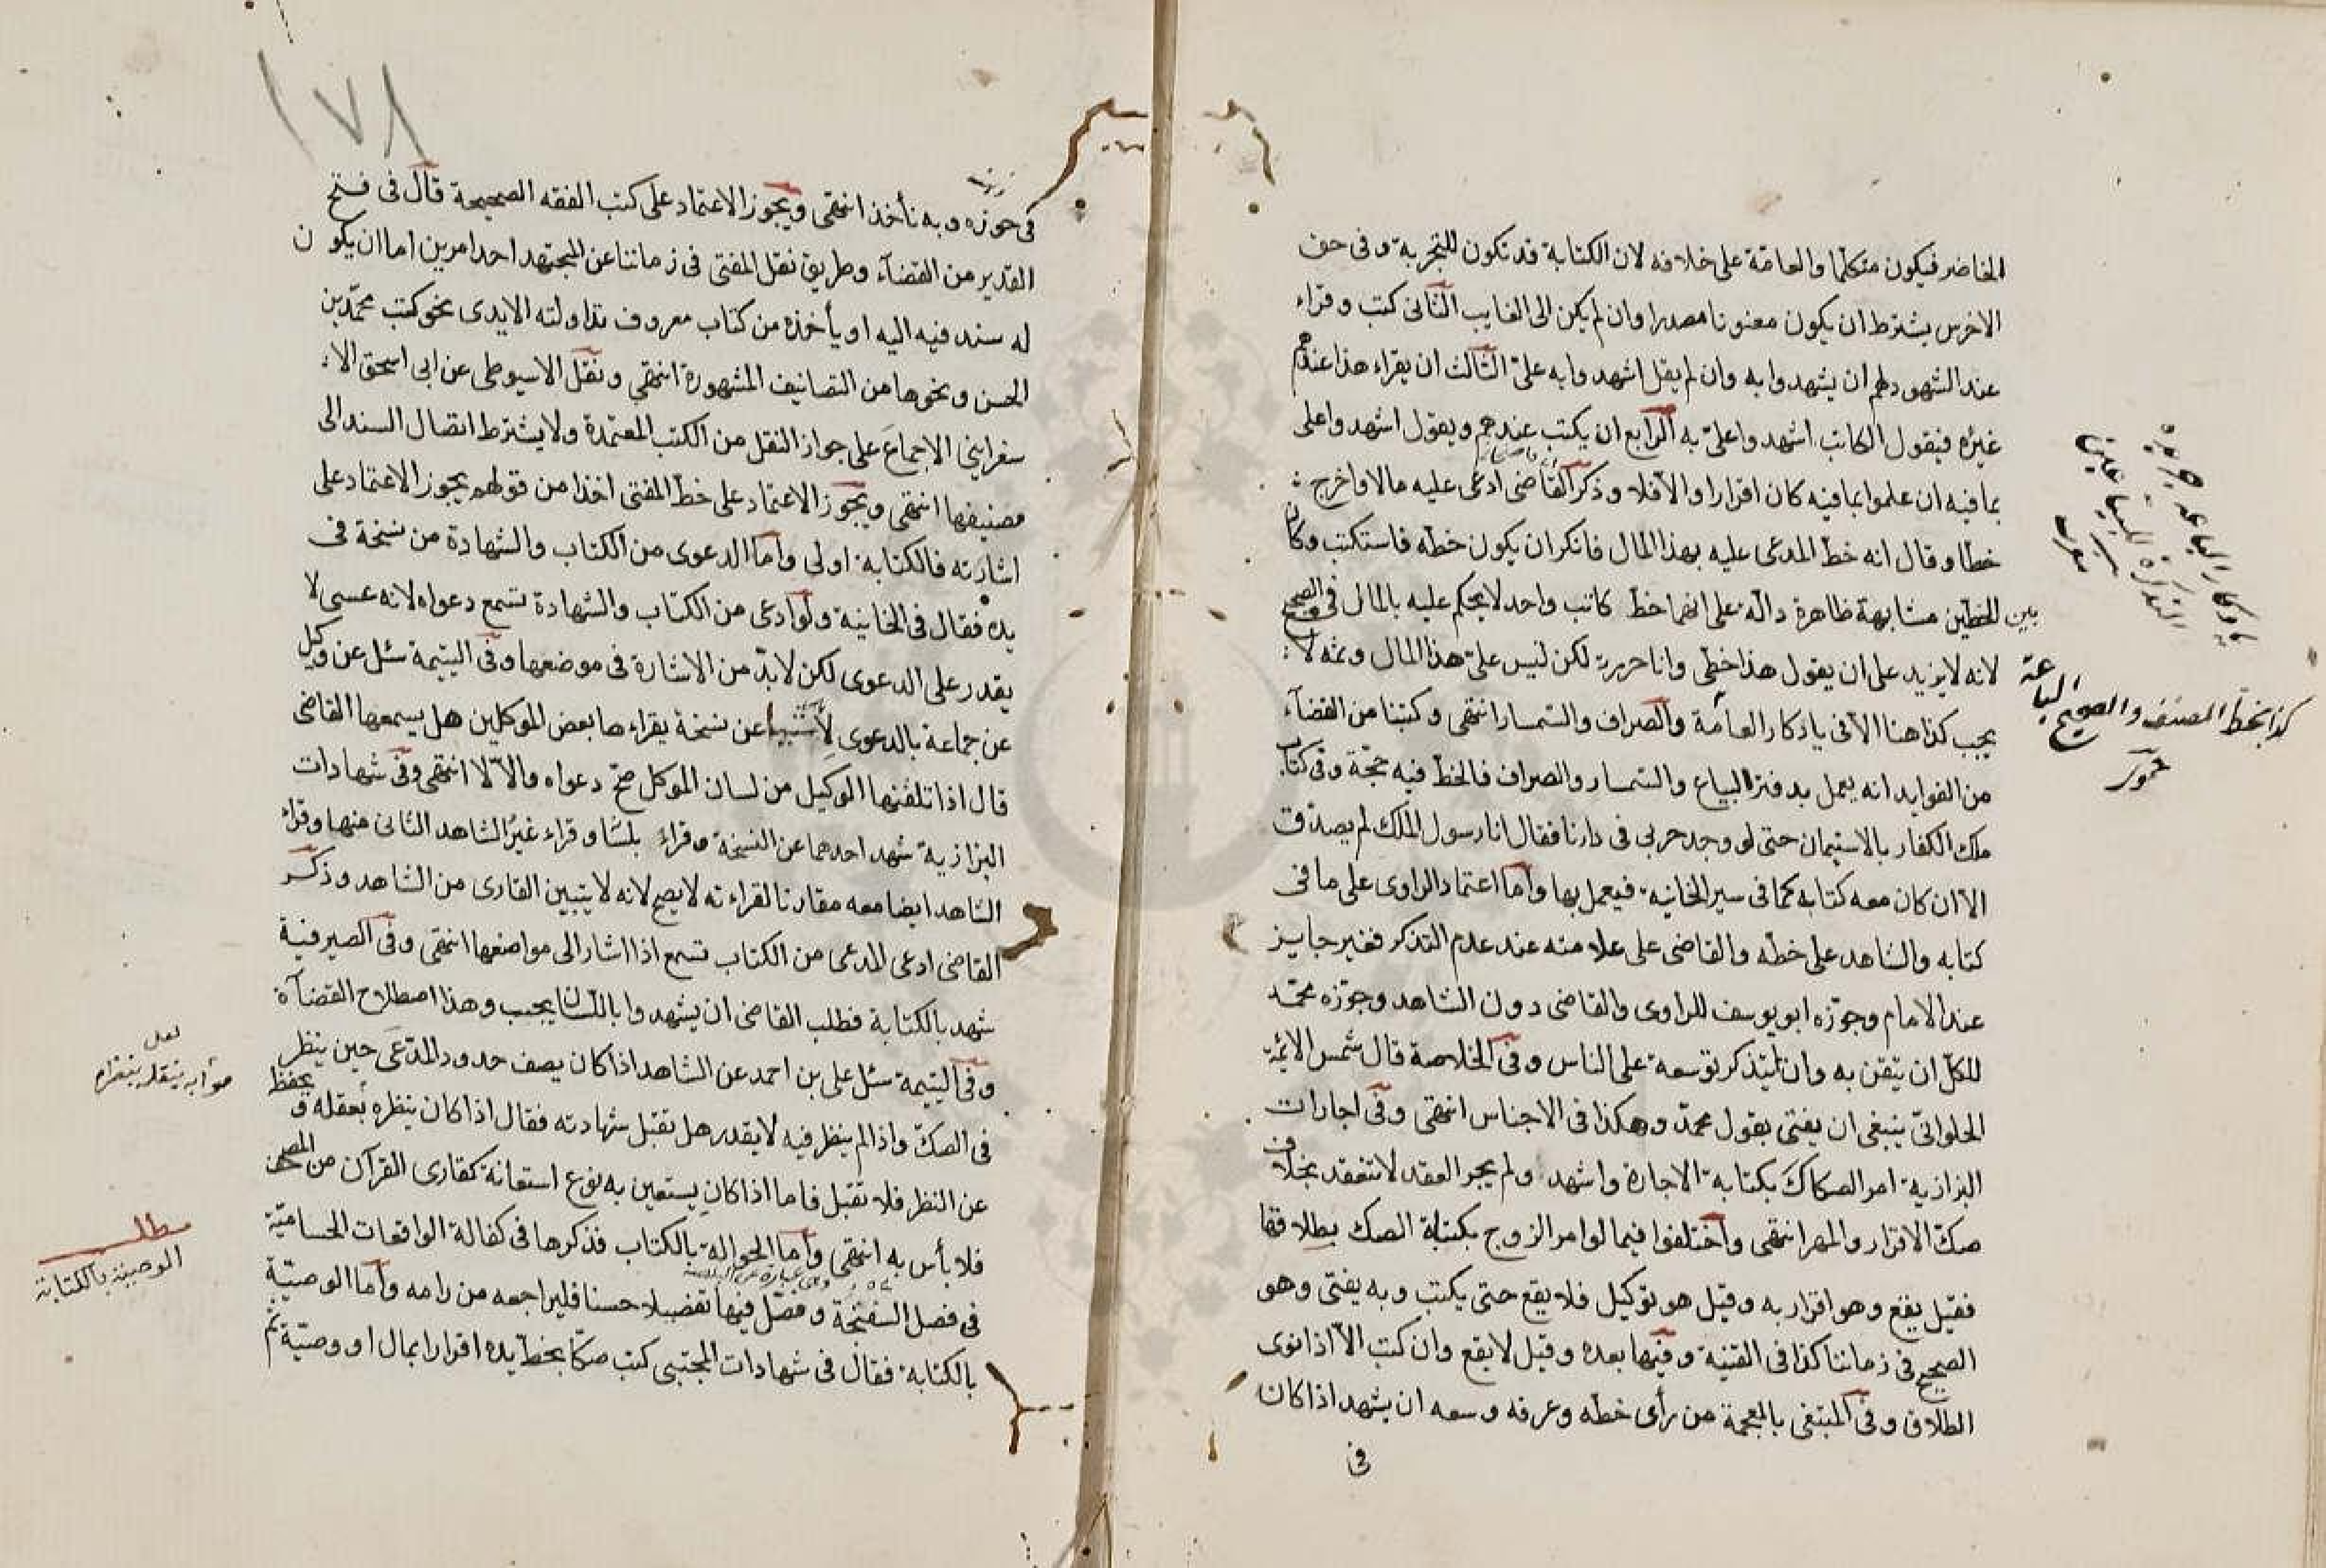 الحاضر فيكون متكلما والعامة على خلافه لان الكتابة قد تكون للتجربة وفى حق
الاخرس يشترط ان يكون معنونا مصدرا وان لم يكن الى الغايب الثانى كتب وقراء
عند الشهود لهم ان يشهدوا به وان لم يقل اشهدوا به علىّ الثالث ان يقراء هذا عندهم
غيره فيقول الكاتب اشهدوا علىّ به الرابع ان يكتب عندهم ويقول اشهدوا على
بما فيه ان علموا بما فيه كان اقرارا والا فلا وذكر القاضى ادعى عليه مالا واخرج
خطا وقال انه خط المدعى عليه بهذا المال فانكر ان يكون خطه فاستكتب وكان
بين الخطين مشابهة ظاهرة دالة على انهما خط كاتب واحد لا يحكم عليه بالمال فى الصحيح
لانه لا يزيد على ان يقول هذا خطى وانا حررته لكن ليس علىّ هذا المال وثمه لا
يجب كذا هنا الا فى يادكار العامة والصراف والسمسار انتهى وكتبنا من القضآء
من الفوايد انه يعمل بدفتر البياع والسمسار والصراف فالخط فيه حجة وفى كتاب
ملك الكفار بالاستيمان حتى لو وجد حربى فى دارنا فقال انا رسول الملك لم يصدق
الا ان كان معه كتابه كما فى سير الخانية فيعمل بها واما اعتماد الراوى على ما فى
كتابه والشاهد على خطه والقاضى على علامته عند عدم التذكر فغير جايز
عند الامام وجوزه ابو يوسف للراوى والقاضى دون الشاهد وجوزه محمد
للكل ان تيقن به وان لم يتذكر توسعة على الناس وفى الخلاصة قال شمس الائمة
الحلوانى ينبغى ان يفتى بقول محمد وهكذا فى الاجناس انتهى وفى اجارات
البزازية امر الصكاك بكتابة الاجارة واشهد ولم يجر العقد لا تنعقد بخلاف
صك الاقرار والمهر انتهى واختلفوا فيما لو امر الزوج بكتابة الصك بطلاقها
فقيل يقع وهو اقرار به وقيل هو توكيل فلا يقع حتى يكتب وبه يفتى وهو
الصحيح فى زماننا كذا فى القنية وفيها بعده وقيل لا يقع وان كتب الا اذا نوى
الطلاق وفى المبتغى بالمعجمة من رأى خطه وعرفه وسعه ان يشهد اذا كان
فى
كذا بخط المصنف والصحيح الباعة
حموى
١٧٨
فى حوزه وبه نأخذ انتهى ويجوز الاعتماد على كتب الفقه الصحيحة قال فى فتح
القدير من القضآء وطريق نقل المفتى فى زماننا عن المجتهد احد امرين اما ان يكون
له سند فيه اليه او يأخذه من كتاب معروف تداولته الايدى نحو كتب محمد بن
الحسن ونحوها من التصانيف المشهورة انتهى ونقل الاسيوطى عن ابى اسحق الا
سفراينى الاجماع على جواز النقل من الكتب المعتمدة ولا يشترط اتصال السند الى
مصنيفها انتهى ويجوز الاعتماد على خط المفتى اخذا من قولهم يجوز الاعتماد على
اشارته فالكتابة اولى واما الدعوى من الكتاب والشهادة من نسخة فى
يده فقال فى الخانية ولو ادعى من الكتاب والشهادة تسمع دعواه لانه عسى لا
يقدر على الدعوى لكن لا بد من الاشارة فى موضعها وفى اليتيمة سئل عن وكيل
عن جماعة بالدعوى عن نسخة يقراءها بعض الموكلين هل يسمعها القاضى
قال اذا تلقنها الوكيل من لسان الموكل صح دعواه والا لا انتهى وفى شهادات
البزازية شهد احدهما عن النسخة وقراء بلسا وقراء غير الشاهد الثانى منها وقراء
الشاهد ايضا معه مقارنا لقراءته لا يصح لانه لا يتبين القارى من الشاهد وذكر
القاضى ادعى المدعى من الكتاب تسمع اذا اشار الى مواضعها انتهى وفى الصيرفية
شهد بالكتابة فطلب القاضى ان يشهدوا باللسان يجب وهذا اصطلاح القضآة
وفى اليتيمة سئل على بن احمد عن الشاهد اذا كان يصف حدود المدعى حين ينظر
فى الصك واذا لم ينظر فيه لا يقدر هل تقبل شهادته فقال اذا كان ينظره بعقله و يحفظ
عن النظر فلا تقبل فاما اذا كان يستعين به نوع استعانة كقارى القرآن من المصحف
فلا بأس به انتهى واما الحوالة بالكتاب فذكرها فى كفالة الواقعات الحسامية
فى فصل السفتجة وفصل فيها تفصيلا حسنا فليراجعه من رامه واما الوصية
بالكتابة فقال فى شهادات المجتبى كتب صكا بخط يده اقرارا بمال او وصية ثم
لعل
مطلب
الوصية بالكتابة